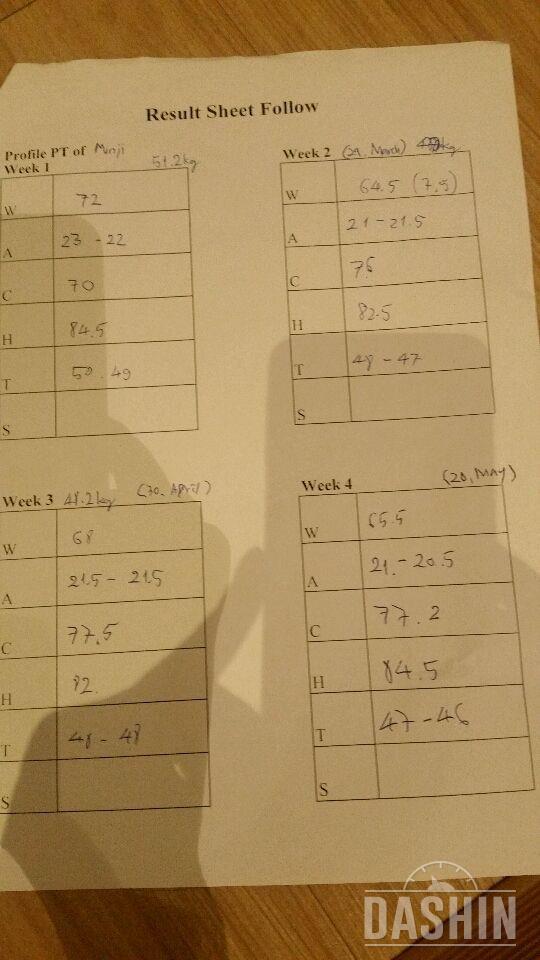 Result Sheet Follow
Profile PT of Minji
Week 1 51.2kg
W 72
A 23 - 22
C 70
H 84.5
T 50 . 49
S
Week 2 (29, March) kg
W 64.5 (7,5)
A 21 - 21.5
C 76
H 82.5
T 48 - 47
S
Week 3 48.2kg (30, April)
W 68
A 21.5 - 21.5
C 77.5
H 82.
T 48 - 48
S
Week 4 (20, MAY)
W 65.5
A 21. - 20.5
C 77.2
H 84.5
T 47 - 46
S
DASHIN